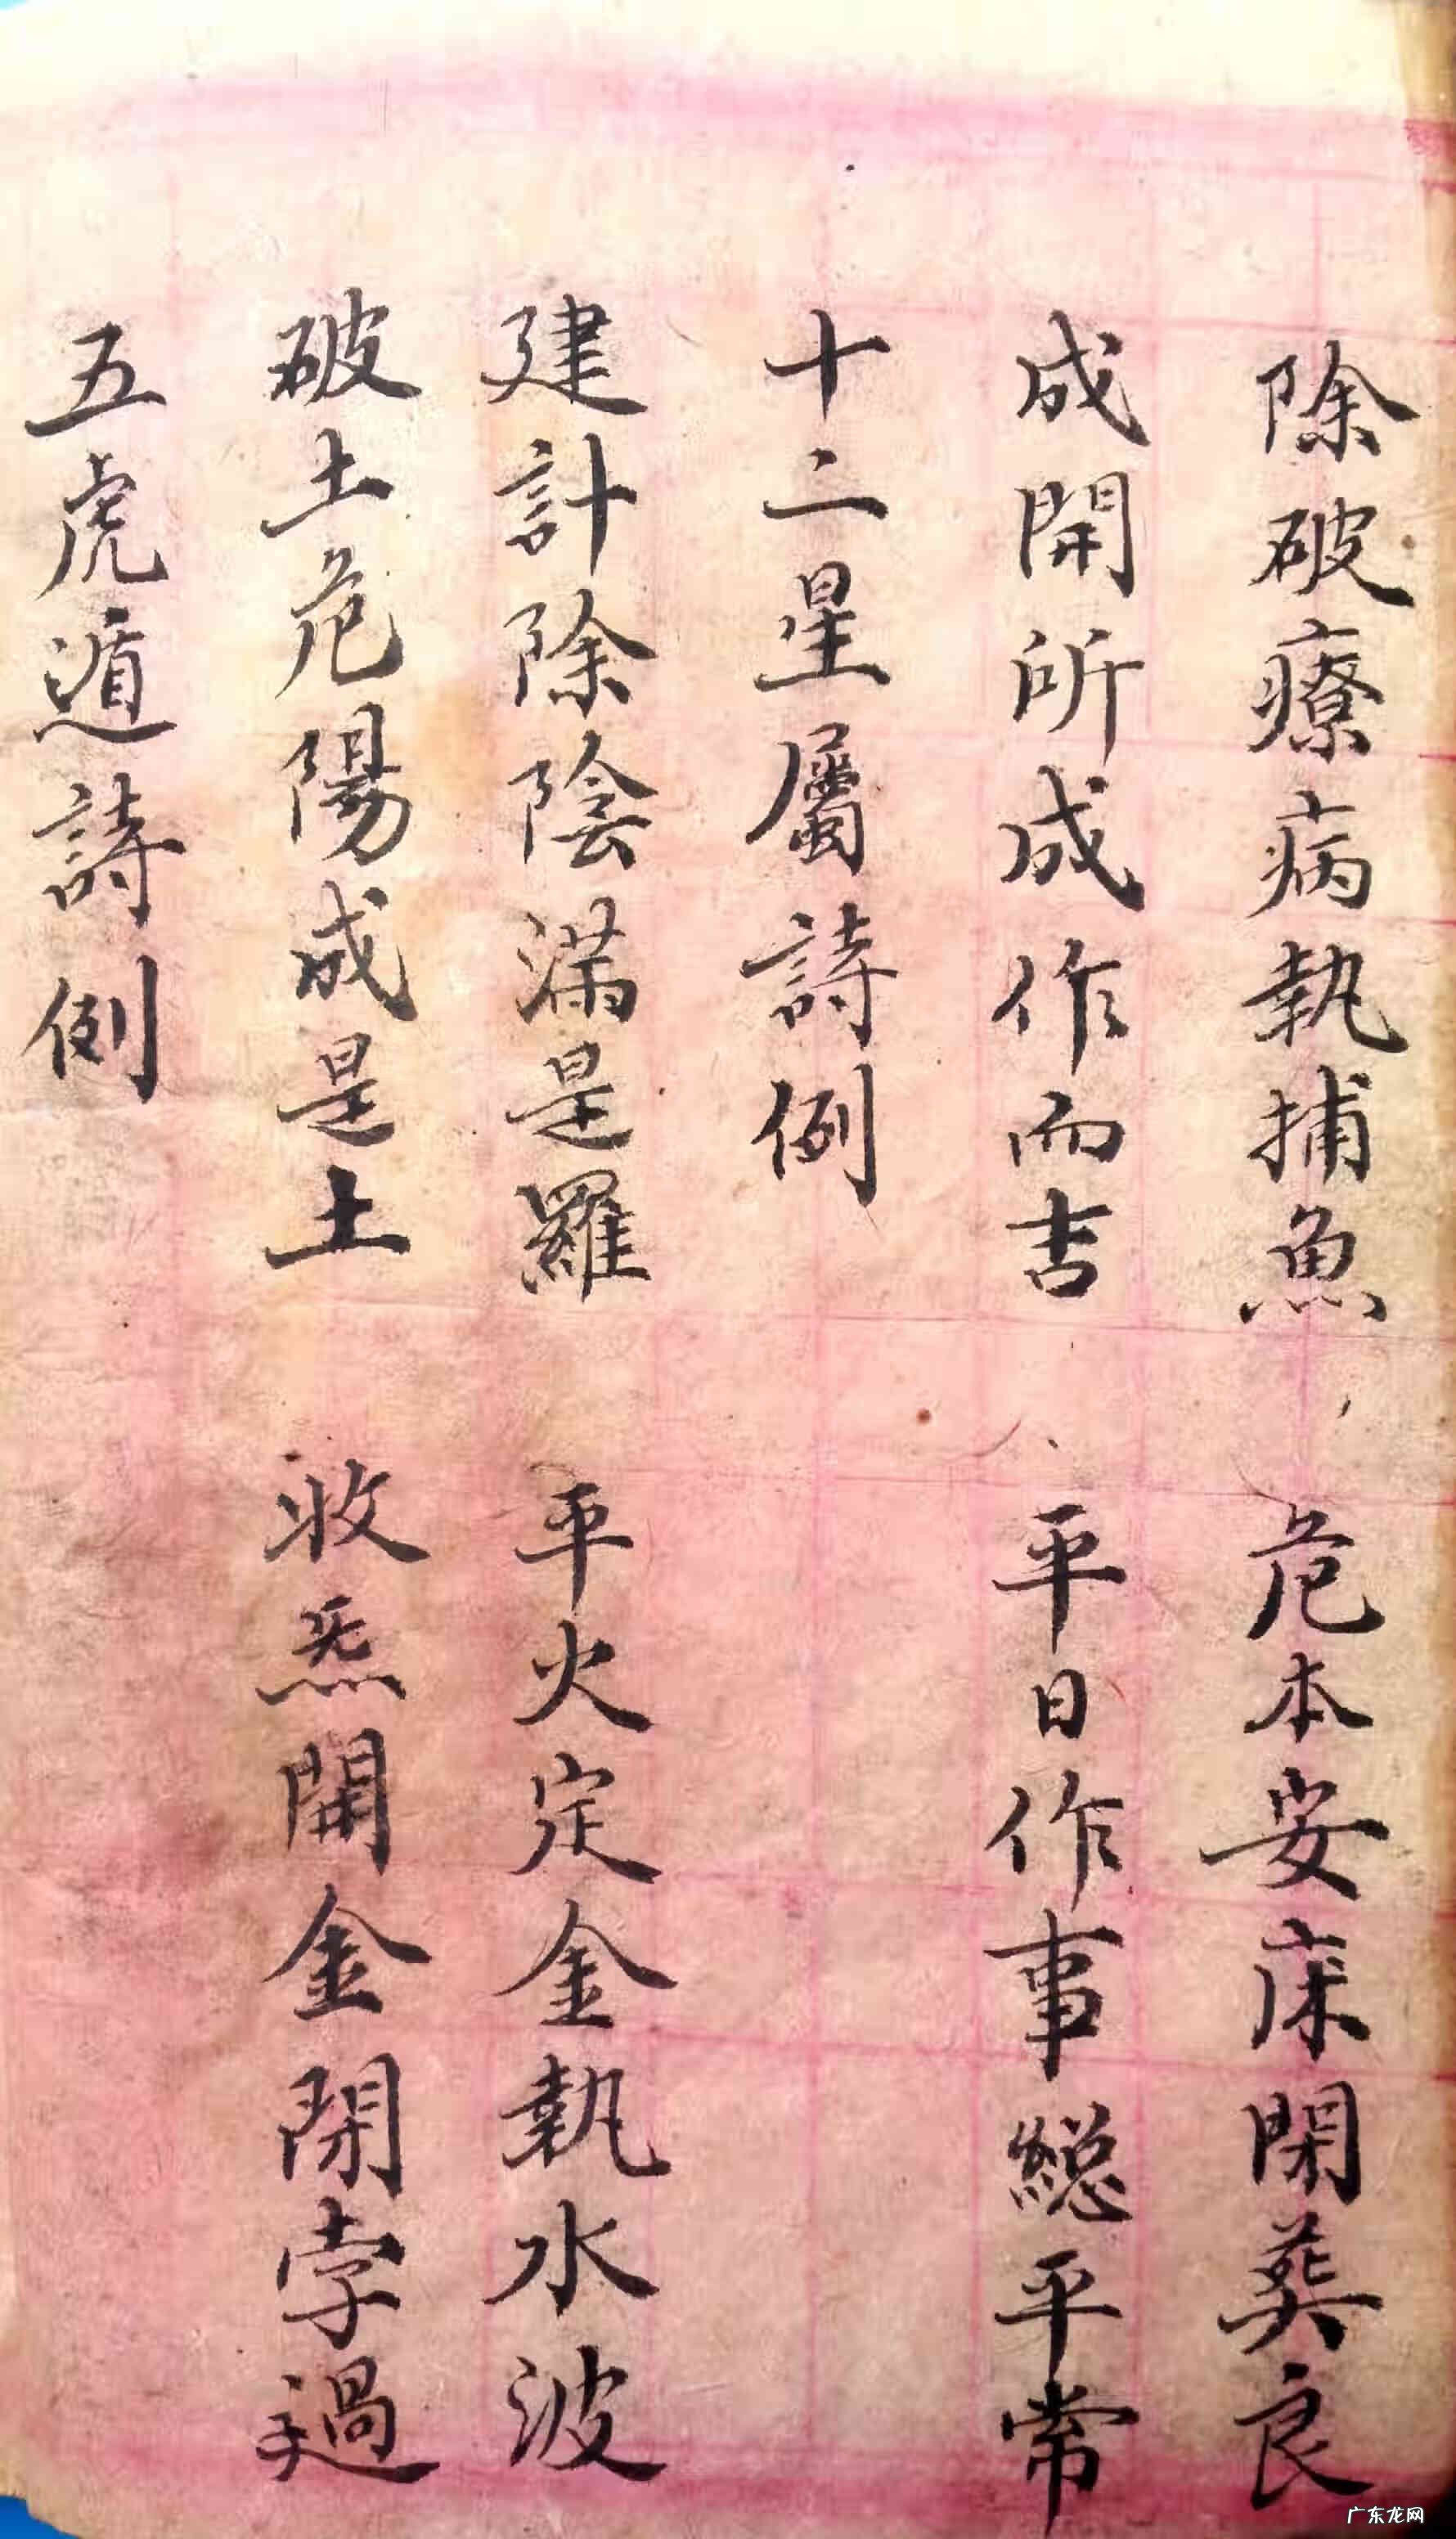 除破療病執捕魚　危本安床閉葬良
成開所成作而吉　平日作事總平常
十二星屬詩例
建計除陰滿是羅　平火定金執水波
破土危陽成是土　收炁開金閉孛過
五虎遁詩例
广东龙网